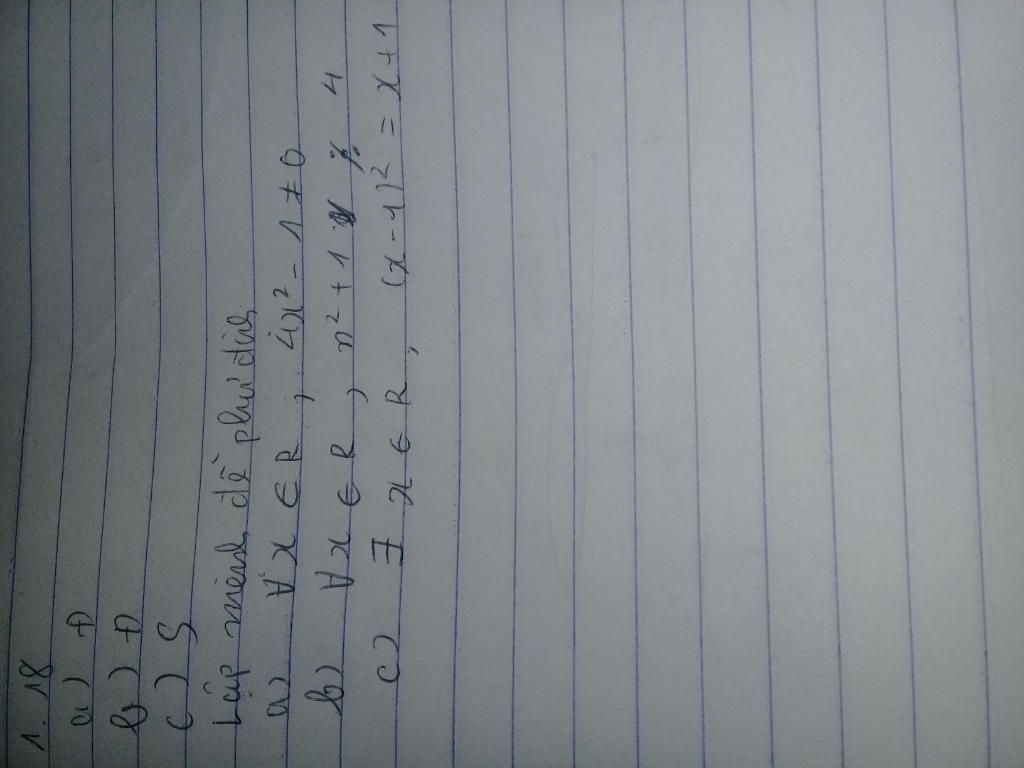 1.18
a) Đ
b) Đ
c) S
Lập mệnh đề phủ định
a) ∀x ∈ R, 4x² - 1 ≠ 0
b) ∀x ∈ R, n² + 1 ⋮̸ 4
c) ∃ x ∈ R, (x - 1)² = x + 1